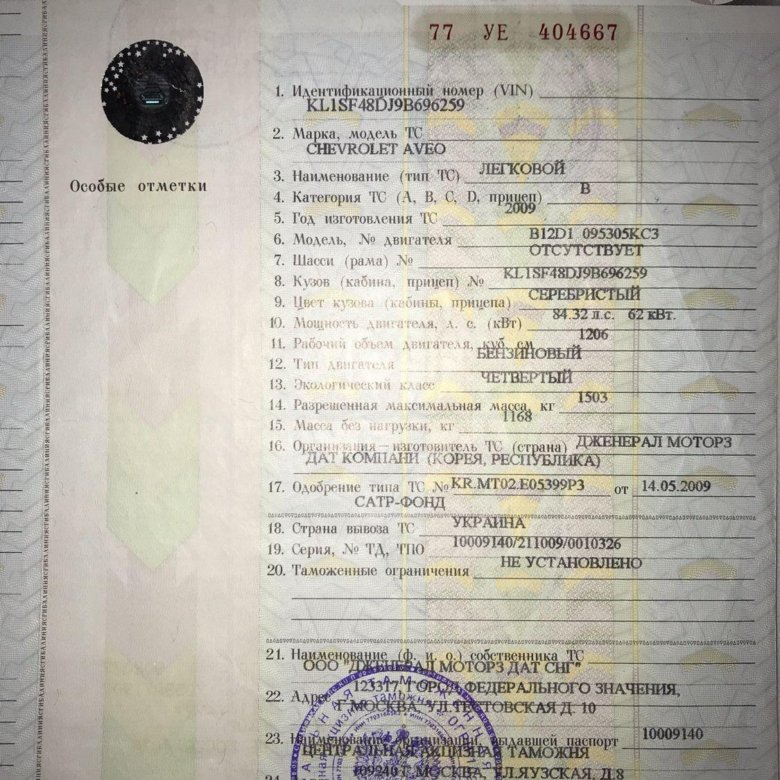 77 УЕ 404667
1. Идентификационный номер (VIN)
KL1SF48DJ9B696259
2. Марка, модель ТС
CHEVROLET AVEO
Особые отметки
3. Наименование (тип ТС) ЛЕГКОВОЙ
4. Категория ТС (А, В, С, D, прицеп) B
5. Год изготовления ТС 2009
6. Модель, № двигателя B12D1 095305KC3
7. Шасси (рама) № ОТСУТСТВУЕТ
8. Кузов (кабина, прицеп) № KL1SF48DJ9B696259
9. Цвет кузова (кабины, прицепа) СЕРЕБРИСТЫЙ
10. Мощность двигателя, л. с. (кВт) 84.32 л.с. 62 кВт.
11. Рабочий объем двигателя, куб. см 1206
12. Тип двигателя БЕНЗИНОВЫЙ
13. Экологический класс ЧЕТВЕРТЫЙ
14. Разрешенная максимальная масса, кг 1503
15. Масса без нагрузки, кг 1168
16. Организация—изготовитель ТС (страна) ДЖЕНЕРАЛ МОТОРЗ
ДАТ КОМПАНИ (КОРЕЯ, РЕСПУБЛИКА)
17. Одобрение типа ТС № KR.MT02.E05399P3 от 14.05.2009
САТР-ФОНД
18. Страна вывоза ТС УКРАИНА
19. Серия, № ТД, ТПО 10009140/211009/0010326
20. Таможенные ограничения НЕ УСТАНОВЛЕНО
21. Наименование (ф. и. о.) собственника ТС
ООО "ДЖЕНЕРАЛ МОТОРЗ ДАТ СНГ"
22. Адрес 123317, ГОРОД ФЕДЕРАЛЬНОГО ЗНАЧЕНИЯ,
Г МОСКВА, УЛ.ТЕСТОВСКАЯ Д. 10
23. Наименование организации, выдавшей паспорт 10009140
ЦЕНТРАЛЬНАЯ АКЦИЗНАЯ ТАМОЖНЯ
109240 Г МОСКВА, УЛ.ЯУЗСКАЯ, Д.8